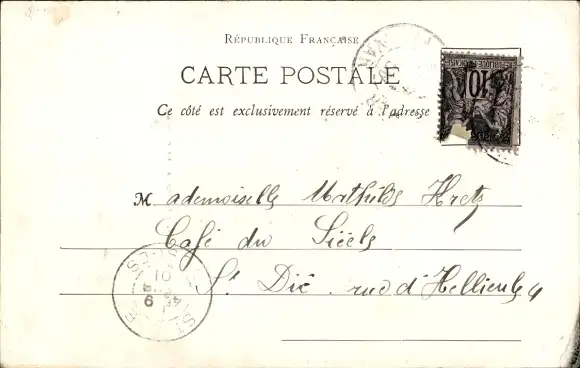 RÉPUBLIQUE FRANÇAISE
CARTE POSTALE
Ce côté est exclusivement réservé à l'adresse
10
Mademoiselle Mathilde Hretz
Café du Siècle
St Dié rue d'Hellieule 4